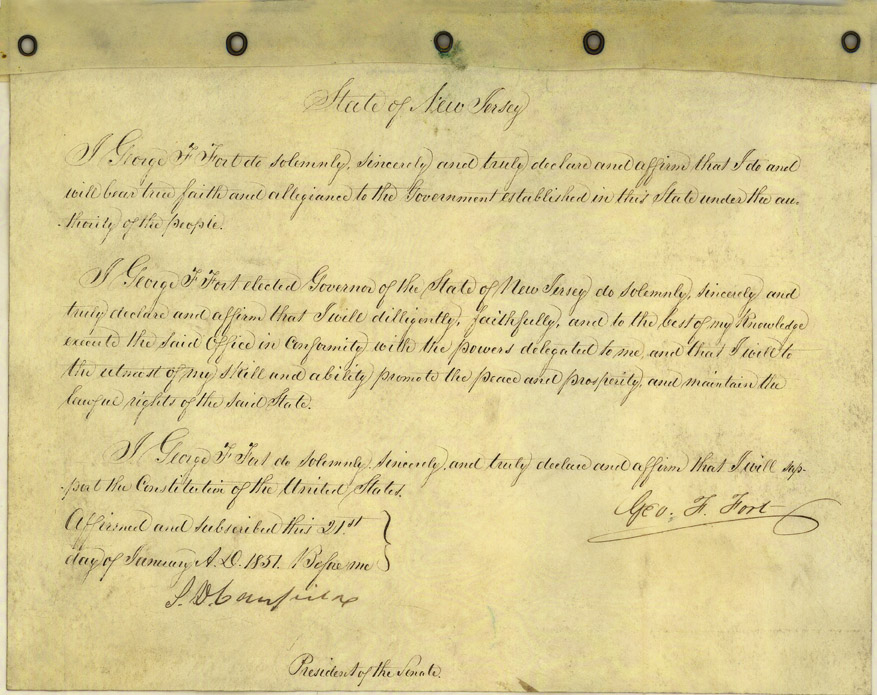 State of New Jersey
I George F Fort do solemnly, sincerely and truly declare and affirm that I do and
will bear true faith and allegiance to the Government established in this State under the au-
-thority of the people.
I George F Fort elected Governor of the State of New Jersey do solemnly, sincerely and
truly declare and affirm that I will dilligently, faithfully, and to the best of my Knowledge
execute the said Office in Conformity with the powers delegated to me, and that I will to
the utmost of my skill and ability promote the peace and prosperity, and maintain the
lawful rights of the said State.
I George F Fort do solemnly, sincerely, and truly declare and affirm that I will sup-
-port the Constitution of the United States.
Geo. F. Fort
Affirmed and subscribed this 21st
day of January A.D. 1851. Before me
S. D. Canfield
President of the Senate.